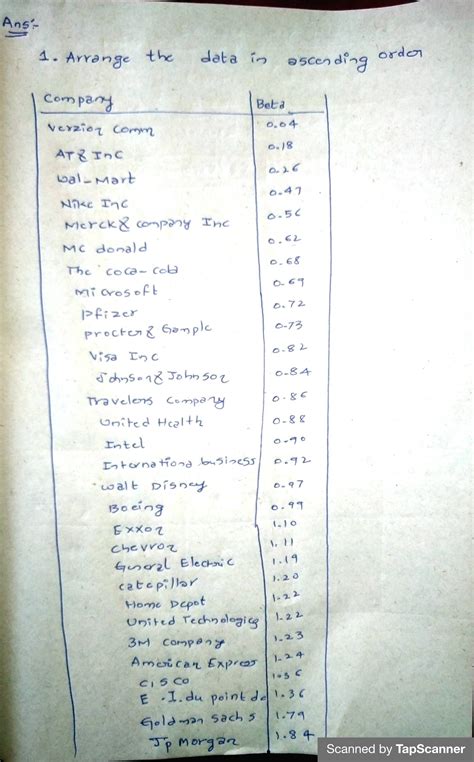 Ans:-
1. Arrange the data in ascending order
Company Beta
Verzion Comm 0.04
AT & Inc 0.18
Wal-Mart 0.26
Nike Inc 0.47
Merck & company Inc 0.56
MC donald 0.62
The coca-cola 0.68
Microsoft 0.69
Pfizer 0.72
Procter & Gample 0.73
Visa Inc 0.82
Johnson & Johnson 0.84
Travelers Company 0.86
United Health 0.88
Intel 0.90
Internationa business 0.92
Walt Disney 0.97
Boeing 0.99
Exxon 1.10
Chevron 1.11
General Electric 1.19
catepillar 1.20
Home Depot 1.22
United Technologies 1.22
3M Company 1.23
American Express 1.24
CISCO 1.36
E. I. du point de 1.36
Goldman sachs 1.79
Jp Morgan 1.84
Scanned by TapScanner